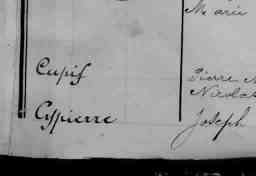 Marie
Cupif Pierre
Nicolas
Cypierre Joseph